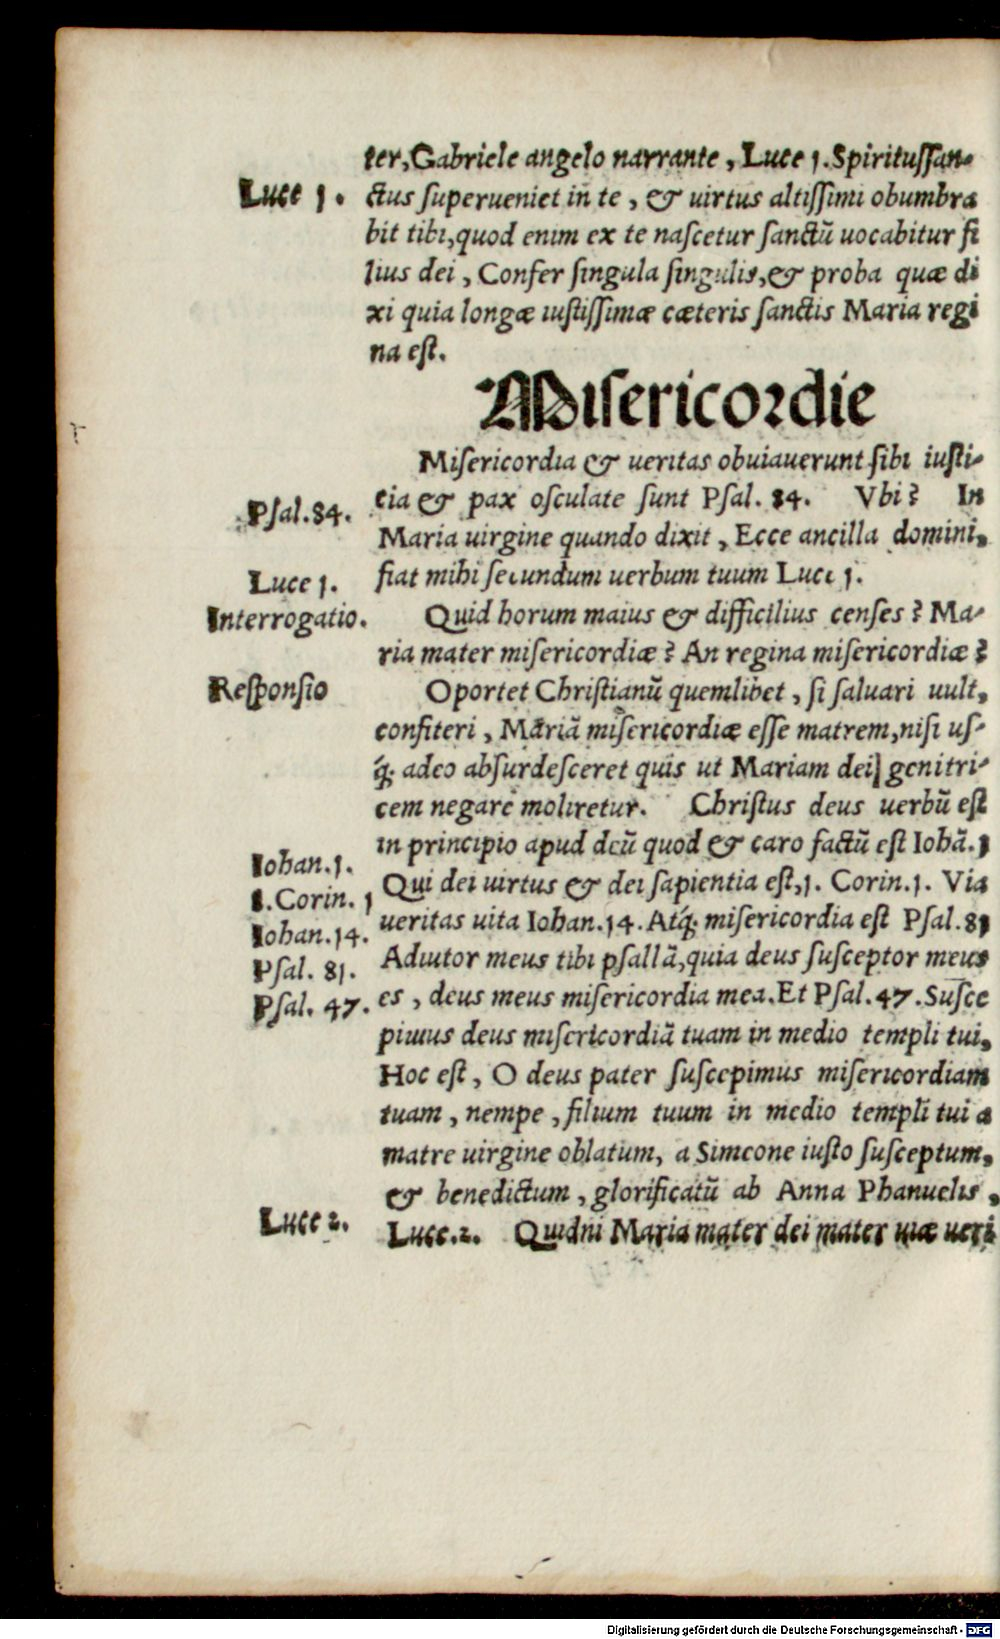 ter, Gabriele angelo narrante, Luce 1. Spiritussan-
Luce 1.
ctus superueniet in te, & uirtus altissimi obumbra
bit tibi, quod enim ex te nascetur sanctũ uocabitur fi
lius dei, Confer singula singulis, & proba quæ di
xi quia longæ iustissimæ cæteris sanctis Maria regi
na est.
Misericordie
Misericordia & ueritas obuiauerunt sibi iusti-
cia & pax osculate sunt Psal. 84. Vbi? In
Psal. 84.
Maria uirgine quando dixit, Ecce ancilla domini,
fiat mihi secundum uerbum tuum Luce 1.
Luce 1.
Interrogatio.
Quid horum maius & difficilius censes? Ma-
ria mater misericordiæ? An regina misericordiæ?
Responsio
Oportet Christianũ quemlibet, si saluari uult,
confiteri, Mariã misericordiæ esse matrem, nisi us-
q; adeo absurdesceret quis ut Mariam dei genitri-
cem negare moliretur. Christus deus uerbũ est
in principio apud deũ quod & caro factũ est Iohã. 1
Iohan. 1.
Qui dei uirtus & dei sapientia est, 1. Corin. 1. Via
1. Corin. 1
ueritas uita Iohan. 14. Atq; misericordia est Psal. 81
Iohan. 14.
Adiutor meus tibi psallã, quia deus susceptor meus
Psal. 81.
es, deus meus misericordia mea. Et Psal. 47. Susce
Psal. 47.
pimus deus misericordiã tuam in medio templi tui,
Hoc est, O deus pater suscepimus misericordiam
tuam, nempe, filium tuum in medio templi tui a
matre uirgine oblatum, a Simeone iusto susceptum,
& benedictum, glorificatũ ab Anna Phanuelis,
Luce 2.
Luce. 2. Quidni Maria mater dei mater uiæ ueri
Digitalisierung gefördert durch die Deutsche Forschungsgemeinschaft - DFG